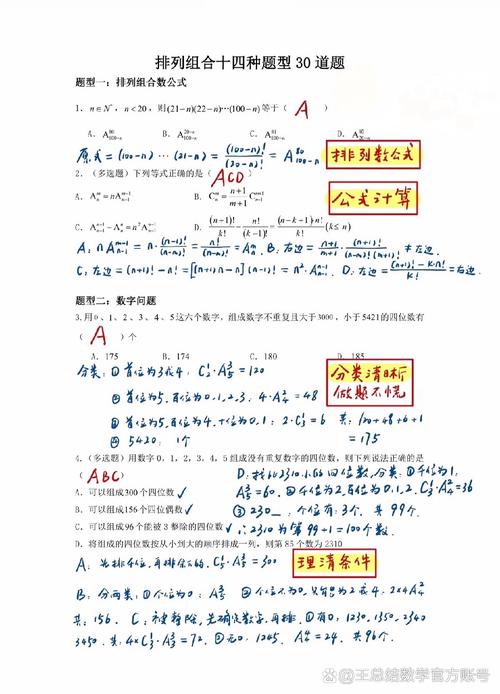 排列组合十四种题型30道题
题型一：排列组合数公式
1、n∈N*，n<20，则(21-n)(22-n)…(100-n)等于（ A ）
A. A^{80}_{100-n} B. A^{20-n}_{100-n} C. A^{81}_{100-n} D.
原式=(100-n)…(21-n)=\frac{(100-n)!}{(20-n)!}=A^{80}_{100-n}
排列数公式
2.（多选题）下列等式正确的是（ ACD ）
A. A_n^m=nA_{n-1}^{m-1} B. C_n^m=\frac{n+1}{m+1}C_{n+1}^{m+1}
公式计算
C. A_{n+1}^{n+1}-A_n^n=n²A_{n-1}^{n-1} D. \frac{(n+1)!}{k!}-\frac{n!}{(k-1)!}=\frac{(n-k+1)·n!}{k!}(k≤n)
A：nA_{n-1}^{m-1}=n·\frac{(n-1)!}{(n-m)!}=\frac{n!}{(n-m)!}=A_n^m. B：右边=\frac{n+1}{m+1}·\frac{(n+1)!}{(n-m)!(m+1)!}≠左边.
C：左边=(n+1)!-n!=[(n+1)n-n](n-1)!=n²·A_{n-1}^{n-1}. D：左边=\frac{(n+1)!-k·n!}{k!}=右边.
题型二：数字问题
3.用0、1、2、3、4、5这六个数字，组成数字不重复且大于3000，小于5421的四位数有
（ A ）个
A. 175 B. 174 C. 180 D. 185
分类：① 首位为3或4：C_2^1·A_5^3=120
分类清晰
做题不慌
② 首位为5，百位为0.1.2.3. 4·A_4^2=48
③ 首位为5，百位为4，十位为0.1：2·C_3^1=6 共：120+48+6+1
④ 5420：1个 =175
4.（多选题）用数字0，1，2，3，4，5组成没有重复数字的四位数，则下列说法正确的是
（ ABC ） D：找比2310小的四位数，分类：①千位为1，
A. 可以组成300个四位数 ✓ A_5^3=60. ②千位为2，百位为0.1.2. C_3^1·A_4^2=36
B. 可以组成156个四位偶数 ✓ ③ 230_ 个位有：3个. 共99个.
C. 可以组成96个能被3整除的四位数 ✓ ∴2310为第99+1=100个数.
D. 将组成的四位数按从小到大的顺序排成一列，则第85个数为2310
A：先排千位，再排余下的. C_5^1·A_5^3=300
理清条件
B：分两类：①个位为0：A_5^3 ②个位不为0，只能为2或4：2×4A_4^2
共：156. C：被3整除，先确定数字，再排. ①有0：1230，1350，2340
3450. 共：4×C_3^1·A_3^3=72. ②无0：1245. A_4^4=24. 共96个.
@王总结数学官方账号